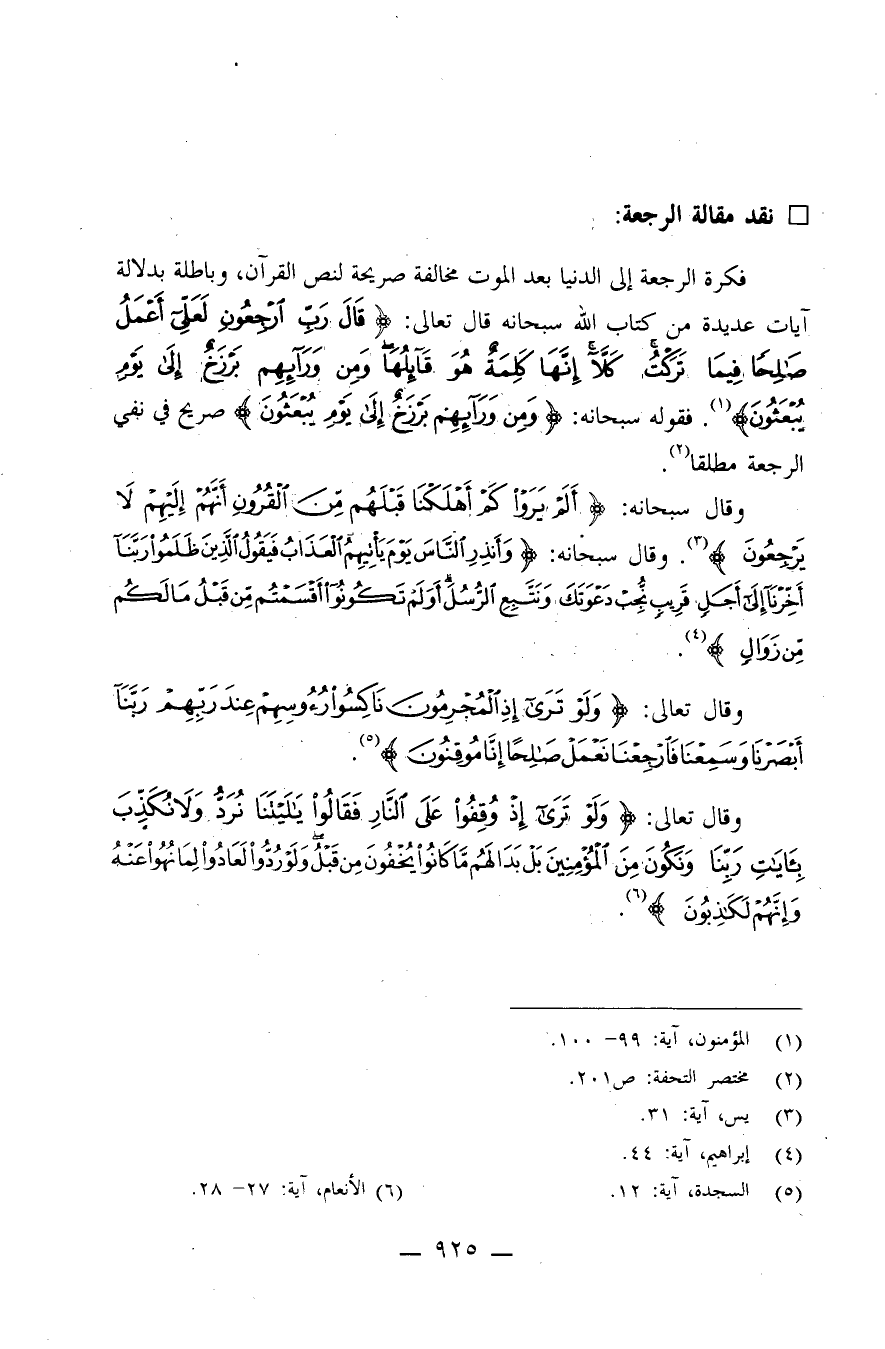 □ نقد مقالة الرجعة:
فكرة الرجعة إلى الدنيا بعد الموت مخالفة صريحة لنص القرآن، وباطلة بدلالة
آيات عديدة من كتاب الله سبحانه قال تعالى: ﴿ قَالَ رَبِّ ٱرْجِعُونِ لَعَلِّىٓ أَعْمَلُ
صَٰلِحًا فِيمَا تَرَكْتُ ۚ كَلَّآ ۚ إِنَّهَا كَلِمَةٌ هُوَ قَآئِلُهَا ۖ وَمِن وَرَآئِهِم بَرْزَخٌ إِلَىٰ يَوْمِ
يُبْعَثُونَ﴾(١). فقوله سبحانه: ﴿ وَمِن وَرَآئِهِم بَرْزَخٌ إِلَىٰ يَوْمِ يُبْعَثُونَ ﴾ صريح في نفي
الرجعة مطلقا(٢).
وقال سبحانه: ﴿ أَلَمْ يَرَوْا۟ كَمْ أَهْلَكْنَا قَبْلَهُم مِّنَ ٱلْقُرُونِ أَنَّهُمْ إِلَيْهِمْ لَا
يَرْجِعُونَ ﴾(٣). وقال سبحانه: ﴿ وَأَنذِرِ ٱلنَّاسَ يَوْمَ يَأْتِيهِمُ ٱلْعَذَابُ فَيَقُولُ ٱلَّذِينَ ظَلَمُوا۟ رَبَّنَآ
أَخِّرْنَآ إِلَىٰٓ أَجَلٍ قَرِيبٍ نُّجِبْ دَعْوَتَكَ وَنَتَّبِعِ ٱلرُّسُلَ ۗ أَوَلَمْ تَكُونُوٓا۟ أَقْسَمْتُم مِّن قَبْلُ مَا لَكُم
مِّن زَوَالٍ ﴾(٤).
وقال تعالى: ﴿ وَلَوْ تَرَىٰٓ إِذِ ٱلْمُجْرِمُونَ نَاكِسُوا۟ رُءُوسِهِمْ عِندَ رَبِّهِمْ رَبَّنَآ
أَبْصَرْنَا وَسَمِعْنَا فَٱرْجِعْنَا نَعْمَلْ صَٰلِحًا إِنَّا مُوقِنُونَ ﴾(٥).
وقال تعالى: ﴿ وَلَوْ تَرَىٰٓ إِذْ وُقِفُوا۟ عَلَى ٱلنَّارِ فَقَالُوا۟ يَٰلَيْتَنَا نُرَدُّ وَلَا نُكَذِّبَ
بِـَٔايَٰتِ رَبِّنَا وَنَكُونَ مِنَ ٱلْمُؤْمِنِينَ بَلْ بَدَا لَهُم مَّا كَانُوا۟ يُخْفُونَ مِن قَبْلُ ۖ وَلَوْ رُدُّوا۟ لَعَادُوا۟ لِمَا نُهُوا۟ عَنْهُ
وَإِنَّهُمْ لَكَٰذِبُونَ ﴾(٦).
(١) المؤمنون، آية: ٩٩- ١٠٠.
(٢) مختصر التحفة: ص٢٠١.
(٣) يس، آية: ٣١.
(٤) إبراهيم، آية: ٤٤.
(٥) السجدة، آية: ١٢. (٦) الأنعام، آية: ٢٧- ٢٨.
— ٩٢٥ —